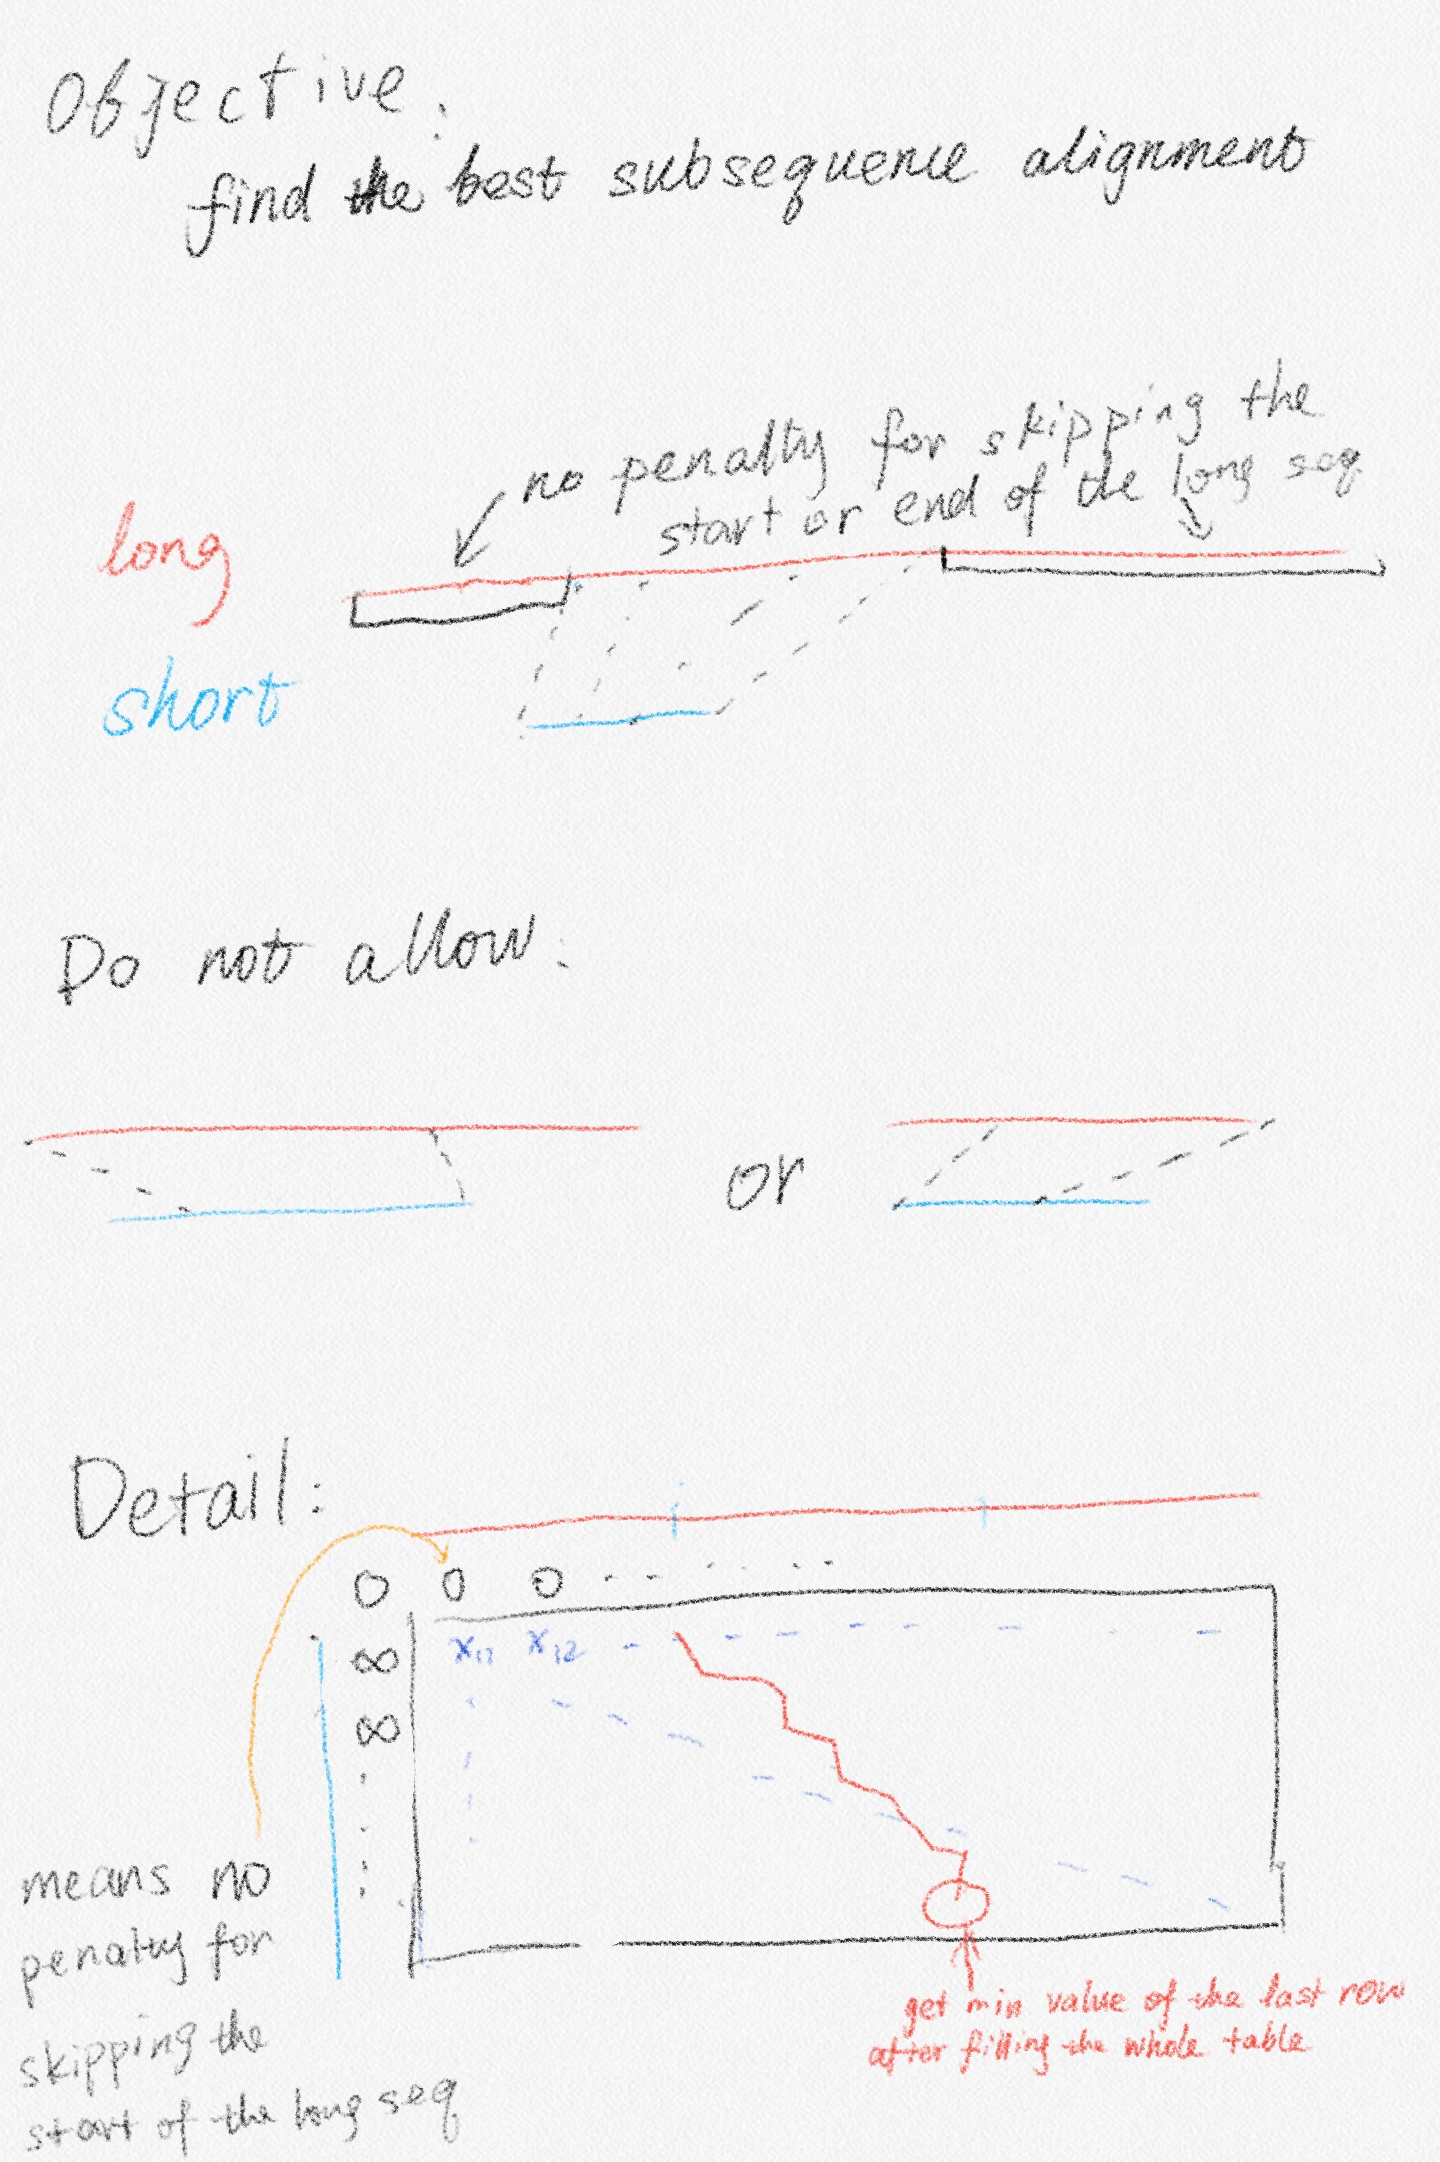 Objective:
find the best subsequence alignment
no penalty for skipping the
start or end of the long seq
long
short
Do not allow:
or
Detail:
0 0 0 . . . . . . .
∞ x₁₁ x₁₂
∞
means no
penalty for
skipping the
start of the long seq
get min value of the last row
after filling the whole table